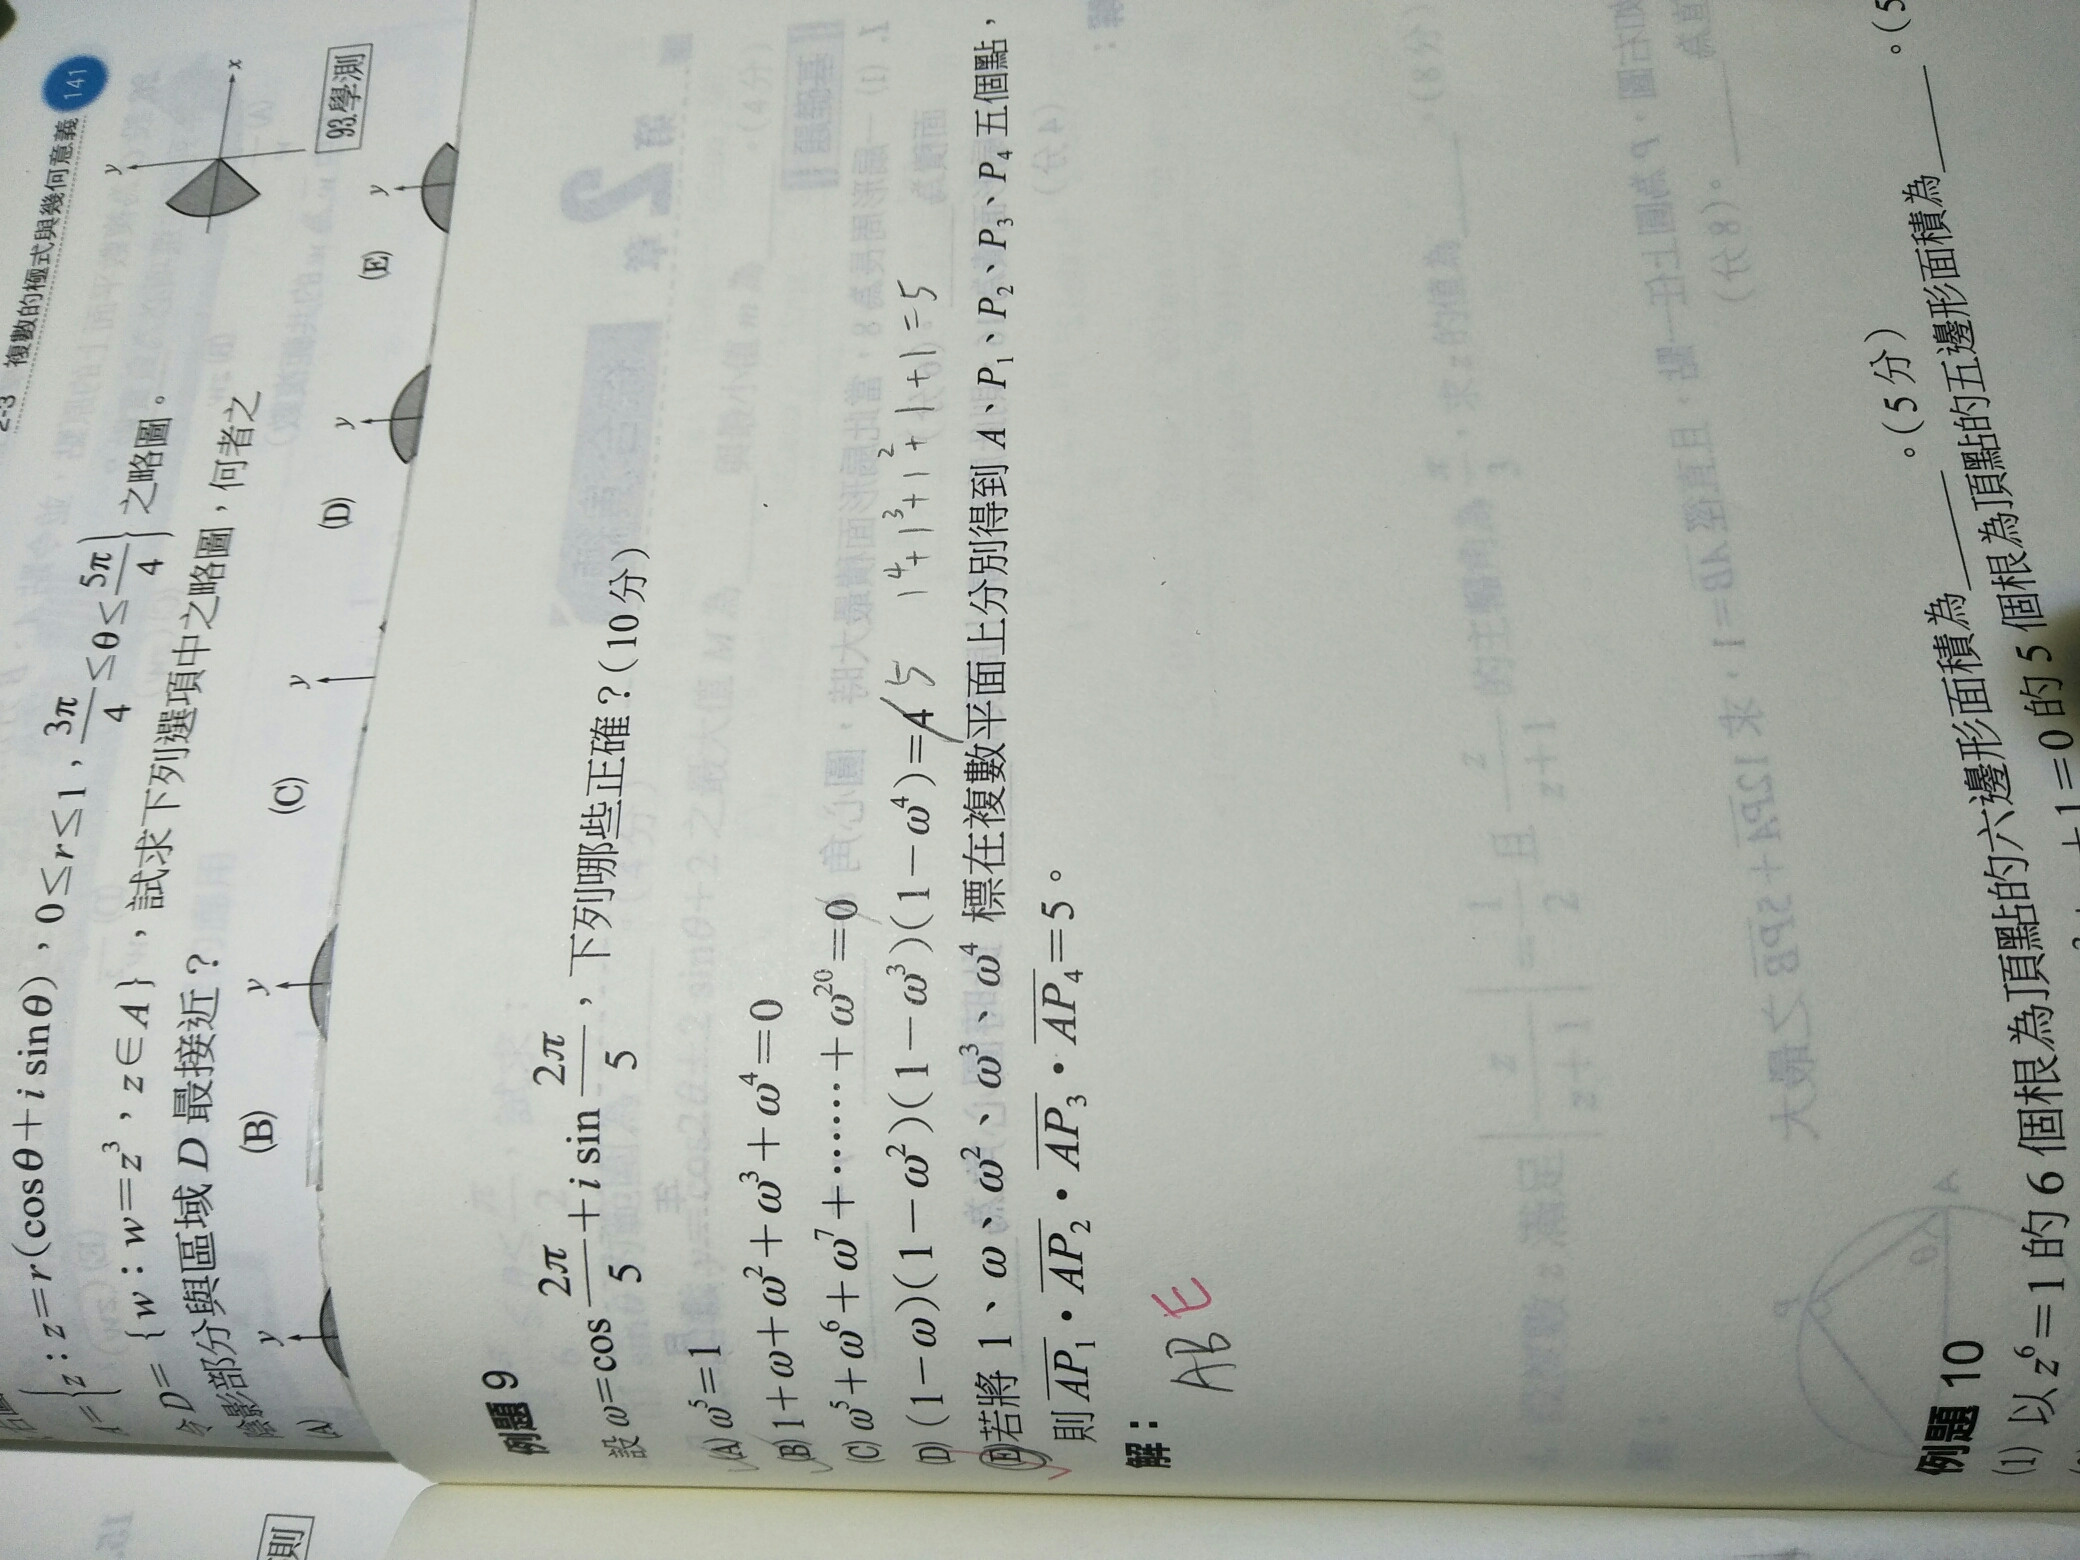 2-3 複數的極式與幾何意義 141
A={z：z=r(cosθ+i sinθ)，0≤r≤1，3π/4≤θ≤5π/4}之略圖。
令D={w：w=z³，z∈A}，試求下列選項中之略圖，何者之
陰影部分與區域D最接近？
93.學測
(A) (B) (C) (D) (E)
y x
y y y y y
例題9
設ω=cos 2π/5 + i sin 2π/5，下列哪些正確？(10分)
(A) ω⁵=1
(B) 1+ω+ω²+ω³+ω⁴=0
(C) ω⁵+ω⁶+ω⁷+……+ω²⁰=0
(D) (1−ω)(1−ω²)(1−ω³)(1−ω⁴)=4 5 1⁴+1³+1²+1+1=5
(E) 若將1、ω、ω²、ω³、ω⁴標在複數平面上分別得到A、P₁、P₂、P₃、P₄五個點，
則AP₁•AP₂•AP₃•AP₄=5。
解：
AB E
例題10
(1) 以z⁶=1的6個根為頂點的六邊形面積為＿＿＿。(5分)
+1=0的5個根為頂點的五邊形面積為＿＿＿。(5
測